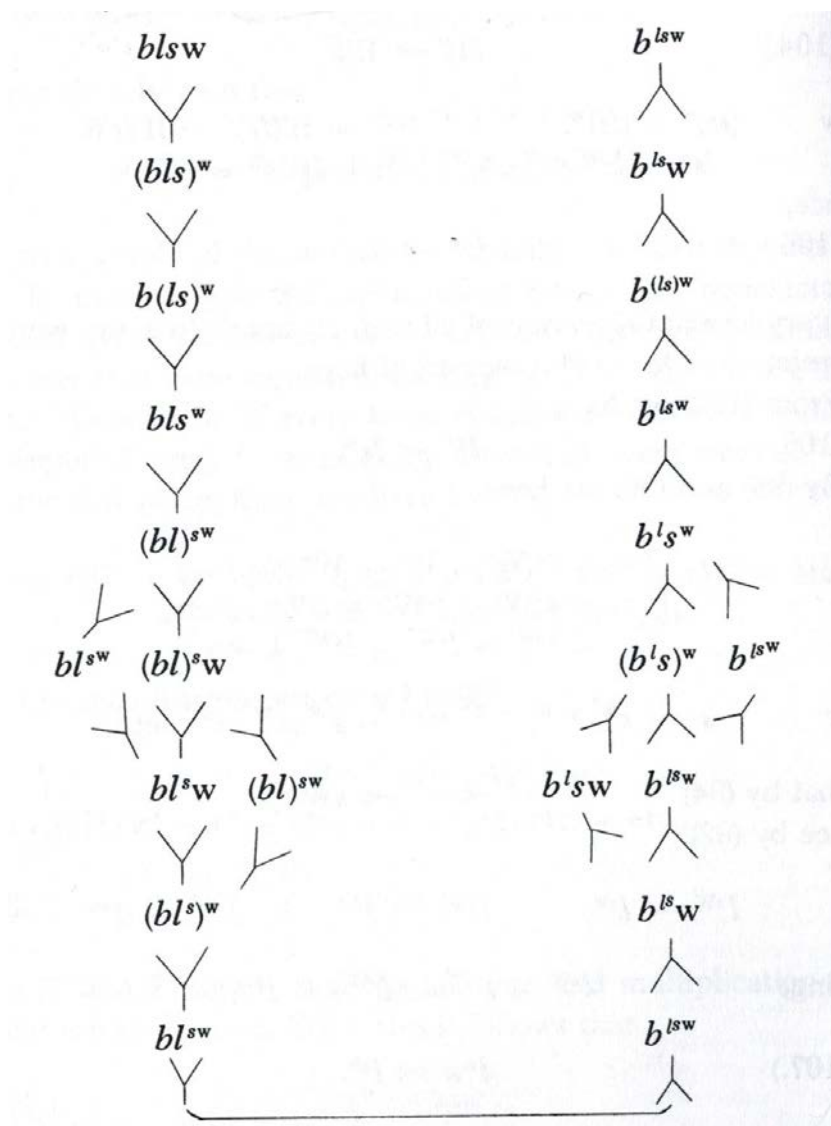 blsw b^{lsw}
(bls)^w b^{ls}w
b(ls)^w b^{(ls)^w}
bls^w b^{ls^w}
(bl)^{s^w} b^ls^w
bl^{s^w} (bl)^sw (b^ls)^w b^{l^{s^w}}
bl^sw (bl)^{sw} b^lsw b^{l^sw}
(bl^s)^w b^{l^s}w
bl^{sw} b^{l^{sw}}